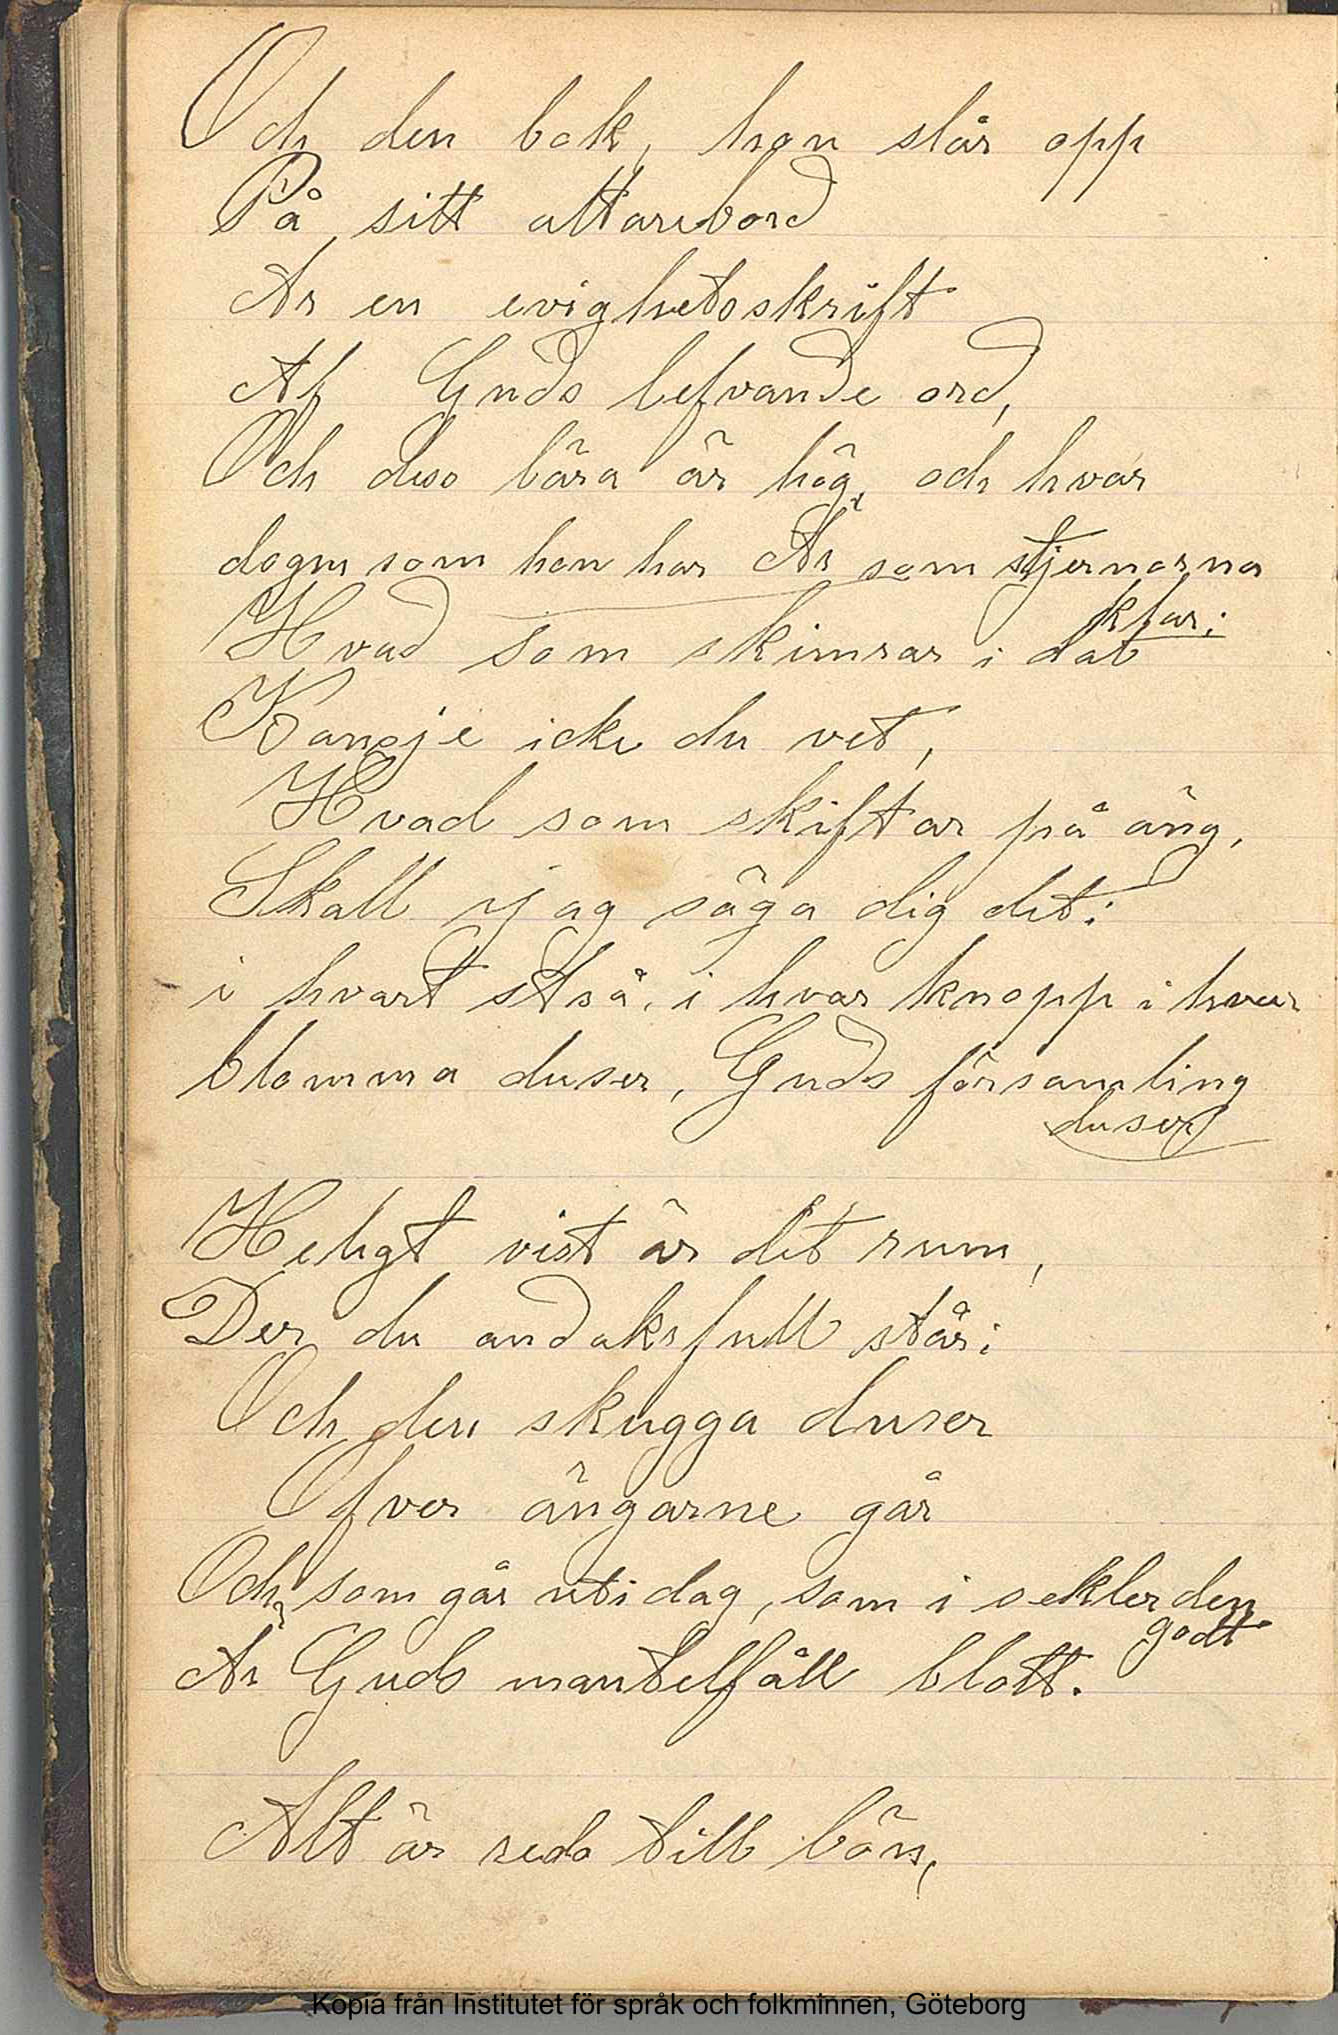 Och den bok, han slår opp
På sitt altarebord
Är en evighetsskrift
Af Guds lefvande ord,
Och dess lära är hög, och hvar
dogm som han har Är som stjernorna
klar;
Hvad som skimrar i dal
Kansje icke du vet,
Hvad som skiftar på äng,
Skall jag säga dig det:
i hvart strå, i hvar knopp i hvar
blomma du ser, Guds församling
du ser
Heligt visst är det rum,
Der du andaksfull står;
Och den skugga du ser
Öfver ängarne går
Och som går uti dag, som i sekler den
gådt
Är Guds mantelfåll blott.
Allt är reda till bön,
Kopia från Institutet för språk och folkminnen, Göteborg